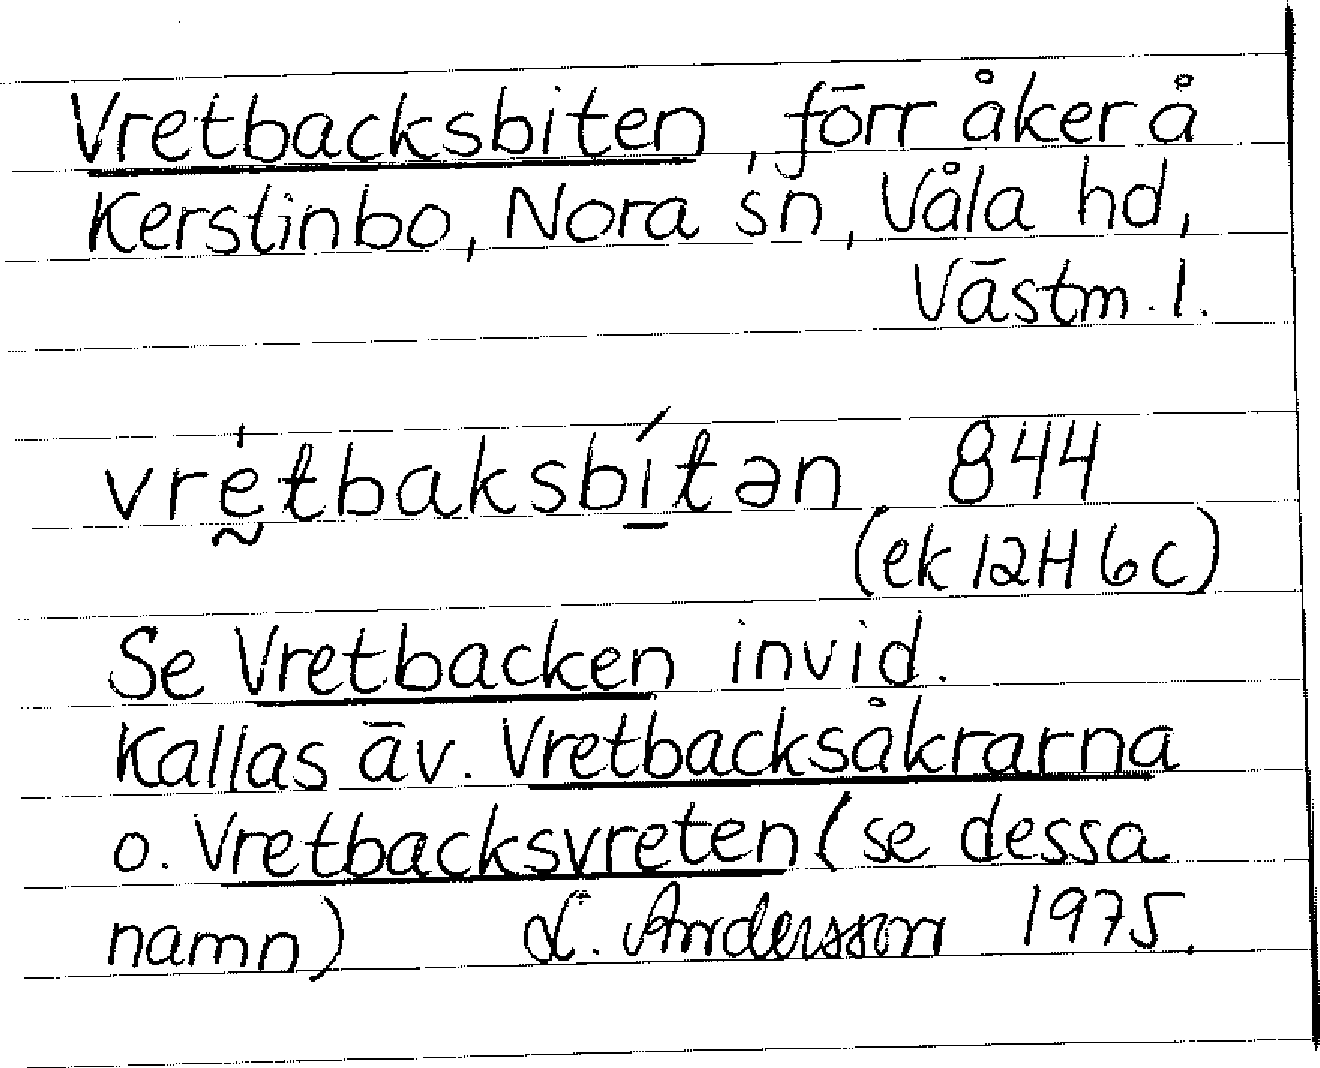 Vretbacksbiten, förr åker å
Kerstinbo, Nora sn, Våla hd,
Västm. l.
vrét̰baksbí̱tən 844
(ek 12H 6c)
Se Vretbacken invid.
Kallas äv. Vretbacksåkrarna
o. Vretbacksvreten (se dessa
namn) L. Andersson 1975.